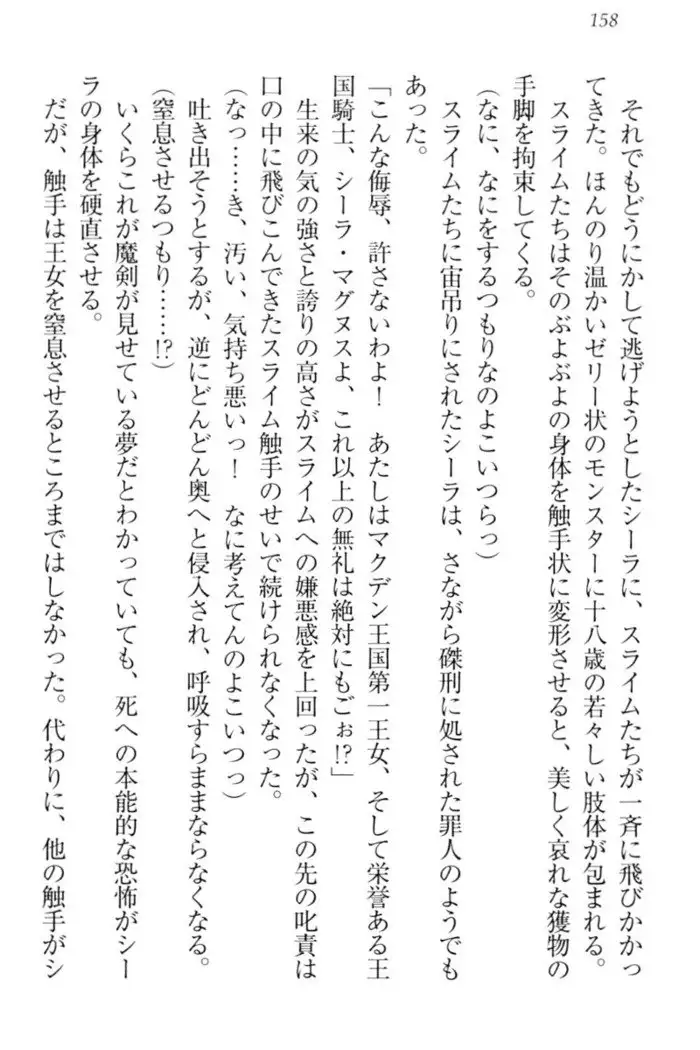 158
それでもどうにかして逃げようとしたシーラに、スライムたちが一斉に飛びかかっ
てきた。ほんのり温かいゼリー状のモンスターに十八歳の若々しい肢体が包まれる。
スライムたちはそのぶよぶよの身体を触手状に変形させると、美しく哀れな獲物の
手脚を拘束してくる。
(なに、なにをするつもりなのよこいつらっ)
スライムたちに宙吊りにされたシーラは、さながら磔刑に処された罪人のようでも
あった。
「こんな侮辱、許さないわよ! あたしはマクデン王国第一王女、そして栄誉ある王
国騎士、シーラ・マグヌスよ、これ以上の無礼は絶対にもごぉ!?」
生来の気の強さと誇りの高さがスライムへの嫌悪感を上回ったが、この先の叱責は
口の中に飛びこんできたスライム触手のせいで続けられなくなった。
(なっ……き、汚い、気持ち悪いっ! なに考えてんのよこいつっ)
吐き出そうとするが、逆にどんどん奥へと侵入され、呼吸すらままならなくなる。
(窒息させるつもり……!?)
いくらこれが魔剣が見せている夢だとわかっていても、死への本能的な恐怖がシー
ラの身体を硬直させる。
だが、触手は王女を窒息させるところまではしなかった。代わりに、他の触手がシ